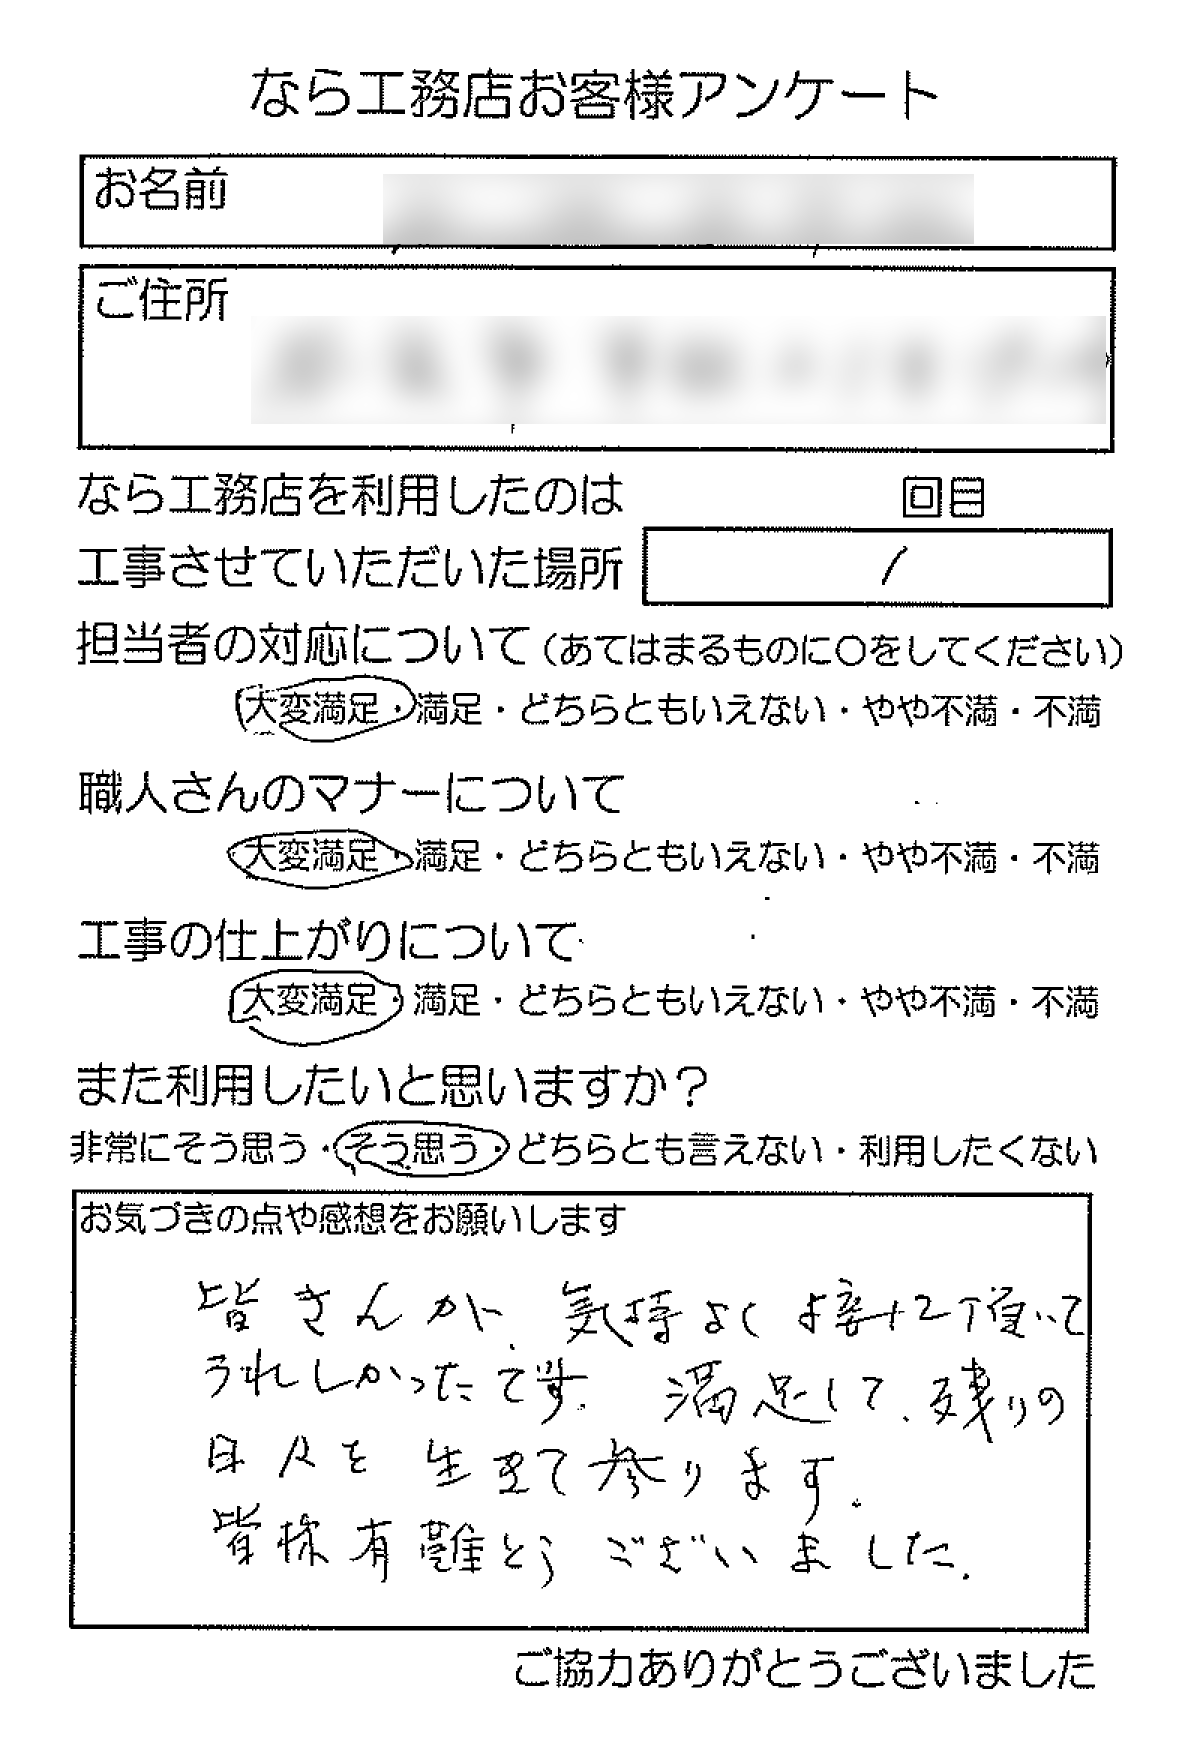 なら工務店お客様アンケート
お名前
ご住所
なら工務店を利用したのは 回目
工事させていただいた場所 /
担当者の対応について(あてはまるものに〇をしてください)
大変満足・満足・どちらともいえない・やや不満・不満
職人さんのマナーについて
大変満足・満足・どちらともいえない・やや不満・不満
工事の仕上がりについて
大変満足・満足・どちらともいえない・やや不満・不満
また利用したいと思いますか?
非常にそう思う・そう思う・どちらとも言えない・利用したくない
お気づきの点や感想をお願いします
皆さんが、気持よく接して頂いて
うれしかったです。満足して、残りの
日々を生きて参ります。
皆様有難とうございました。
ご協力ありがとうございました